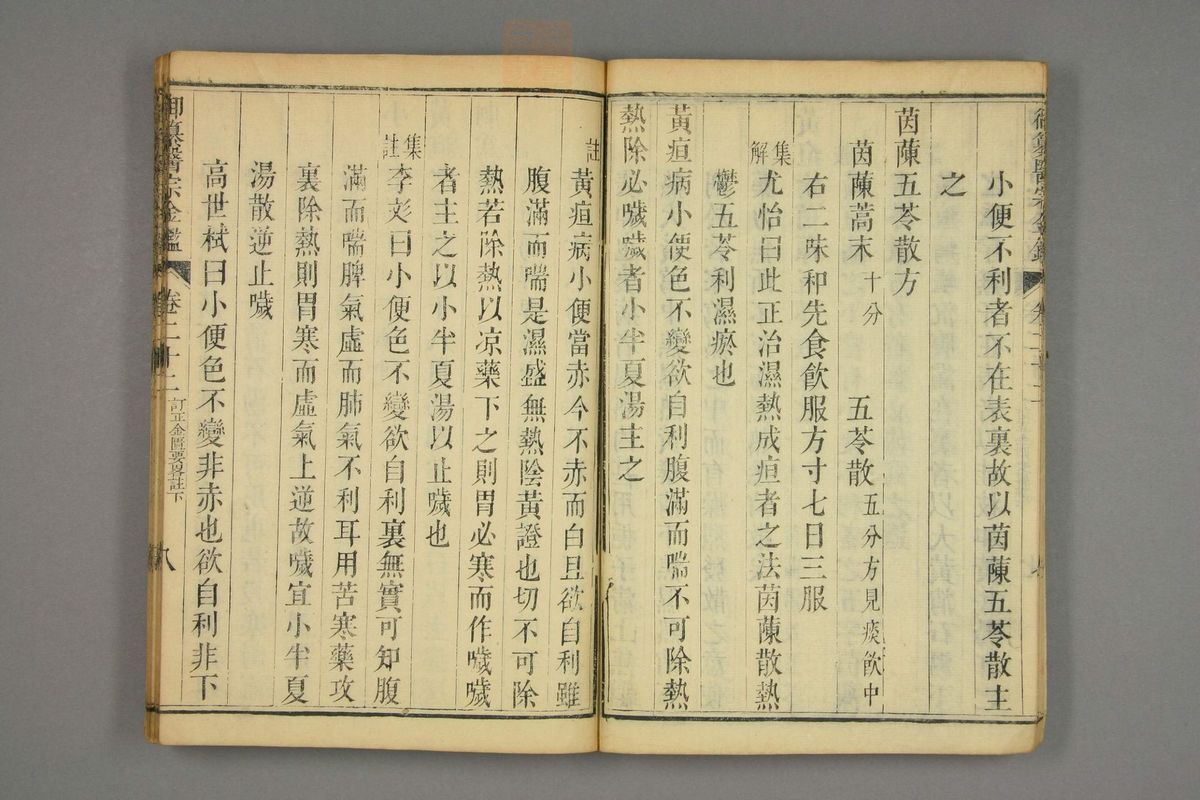 小便不利者不在表裏故以茵蔯五苓散主
之
茵蔯五苓散方
茵蔯蒿末十分 五苓散五分方見痰飲中
右二味和先食飲服方寸七日三服
集解 尤怡曰此正治濕熱成疸者之法茵蔯散熱
鬱五苓利濕瘀也
黃疸病小便色不變欲自利腹滿而喘不可除熱
熱除必噦噦者小半夏湯主之
註 黃疸病小便當赤今不赤而白且欲自利雖
腹滿而喘是濕盛無熱陰黃證也切不可除
熱若除熱以凉藥下之則胃必寒而作噦噦
者主之以小半夏湯以止噦也
集註 李彣曰小便色不變欲自利裏無實可知腹
滿而喘脾氣虛而肺氣不利耳用苦寒藥攻
裏除熱則胃寒而虛氣上逆故噦宜小半夏
湯散逆止噦
高世栻曰小便色不變非赤也欲自利非下
御纂醫宗金鑑 卷二十二 訂正金匱要畧註下 八